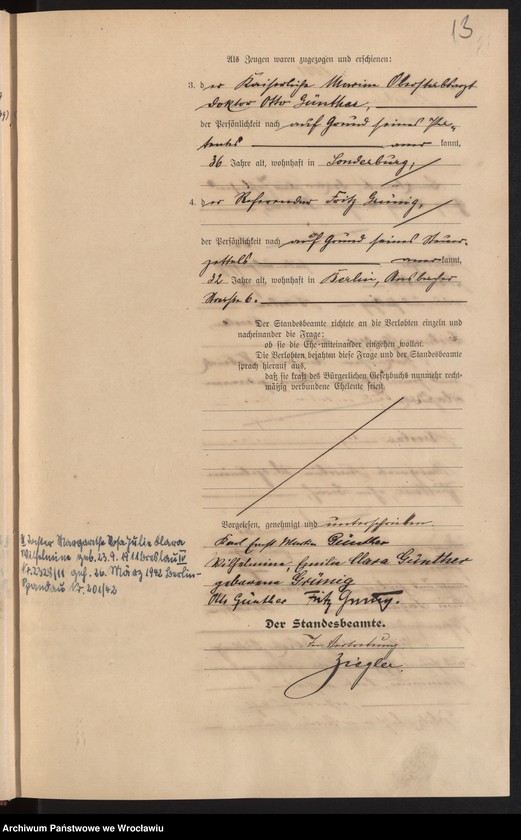 13
Als Zeugen waren zugezogen und erschienen:
3. der Kaiserliche Marine Oberstabsarzt
Doktor Otto Günther,
der Persönlichkeit nach auf Grund seines Pa-
tentes anerkannt,
36 Jahre alt, wohnhaft in Sonderburg,
4. der Referendar Fritz Grünig,
der Persönlichkeit nach auf Grund seines Steuer-
zettels anerkannt,
32 Jahre alt, wohnhaft in Berlin, Ansbacher
Straße 6.
Der Standesbeamte richtete an die Verlobten einzeln und
nacheinander die Frage:
ob sie die Ehe miteinander eingehen wollen.
Die Verlobten bejahten diese Frage und der Standesbeamte
sprach hierauf aus,
daß sie kraft des Bürgerlichen Gesetzbuchs nunmehr recht-
mäßig verbundene Eheleute seien.
Vorgelesen, genehmigt und unterschrieben
Karl Ernst Günther
Wilhelmine, Emilie Clara Günther
geborene Grünig
Otto Günther Fritz Grünig.
Der Standesbeamte.
In Vertretung
Ziegler.
Tochter Margarethe Rosa Julie Klara
Wilhelmine geb. 23.9.1911 Breslau IV
Nr. 2323/11 geh. 26. März 1942 Berlin-
Spandau Nr. 201/42
Archiwum Państwowe we Wrocławiu